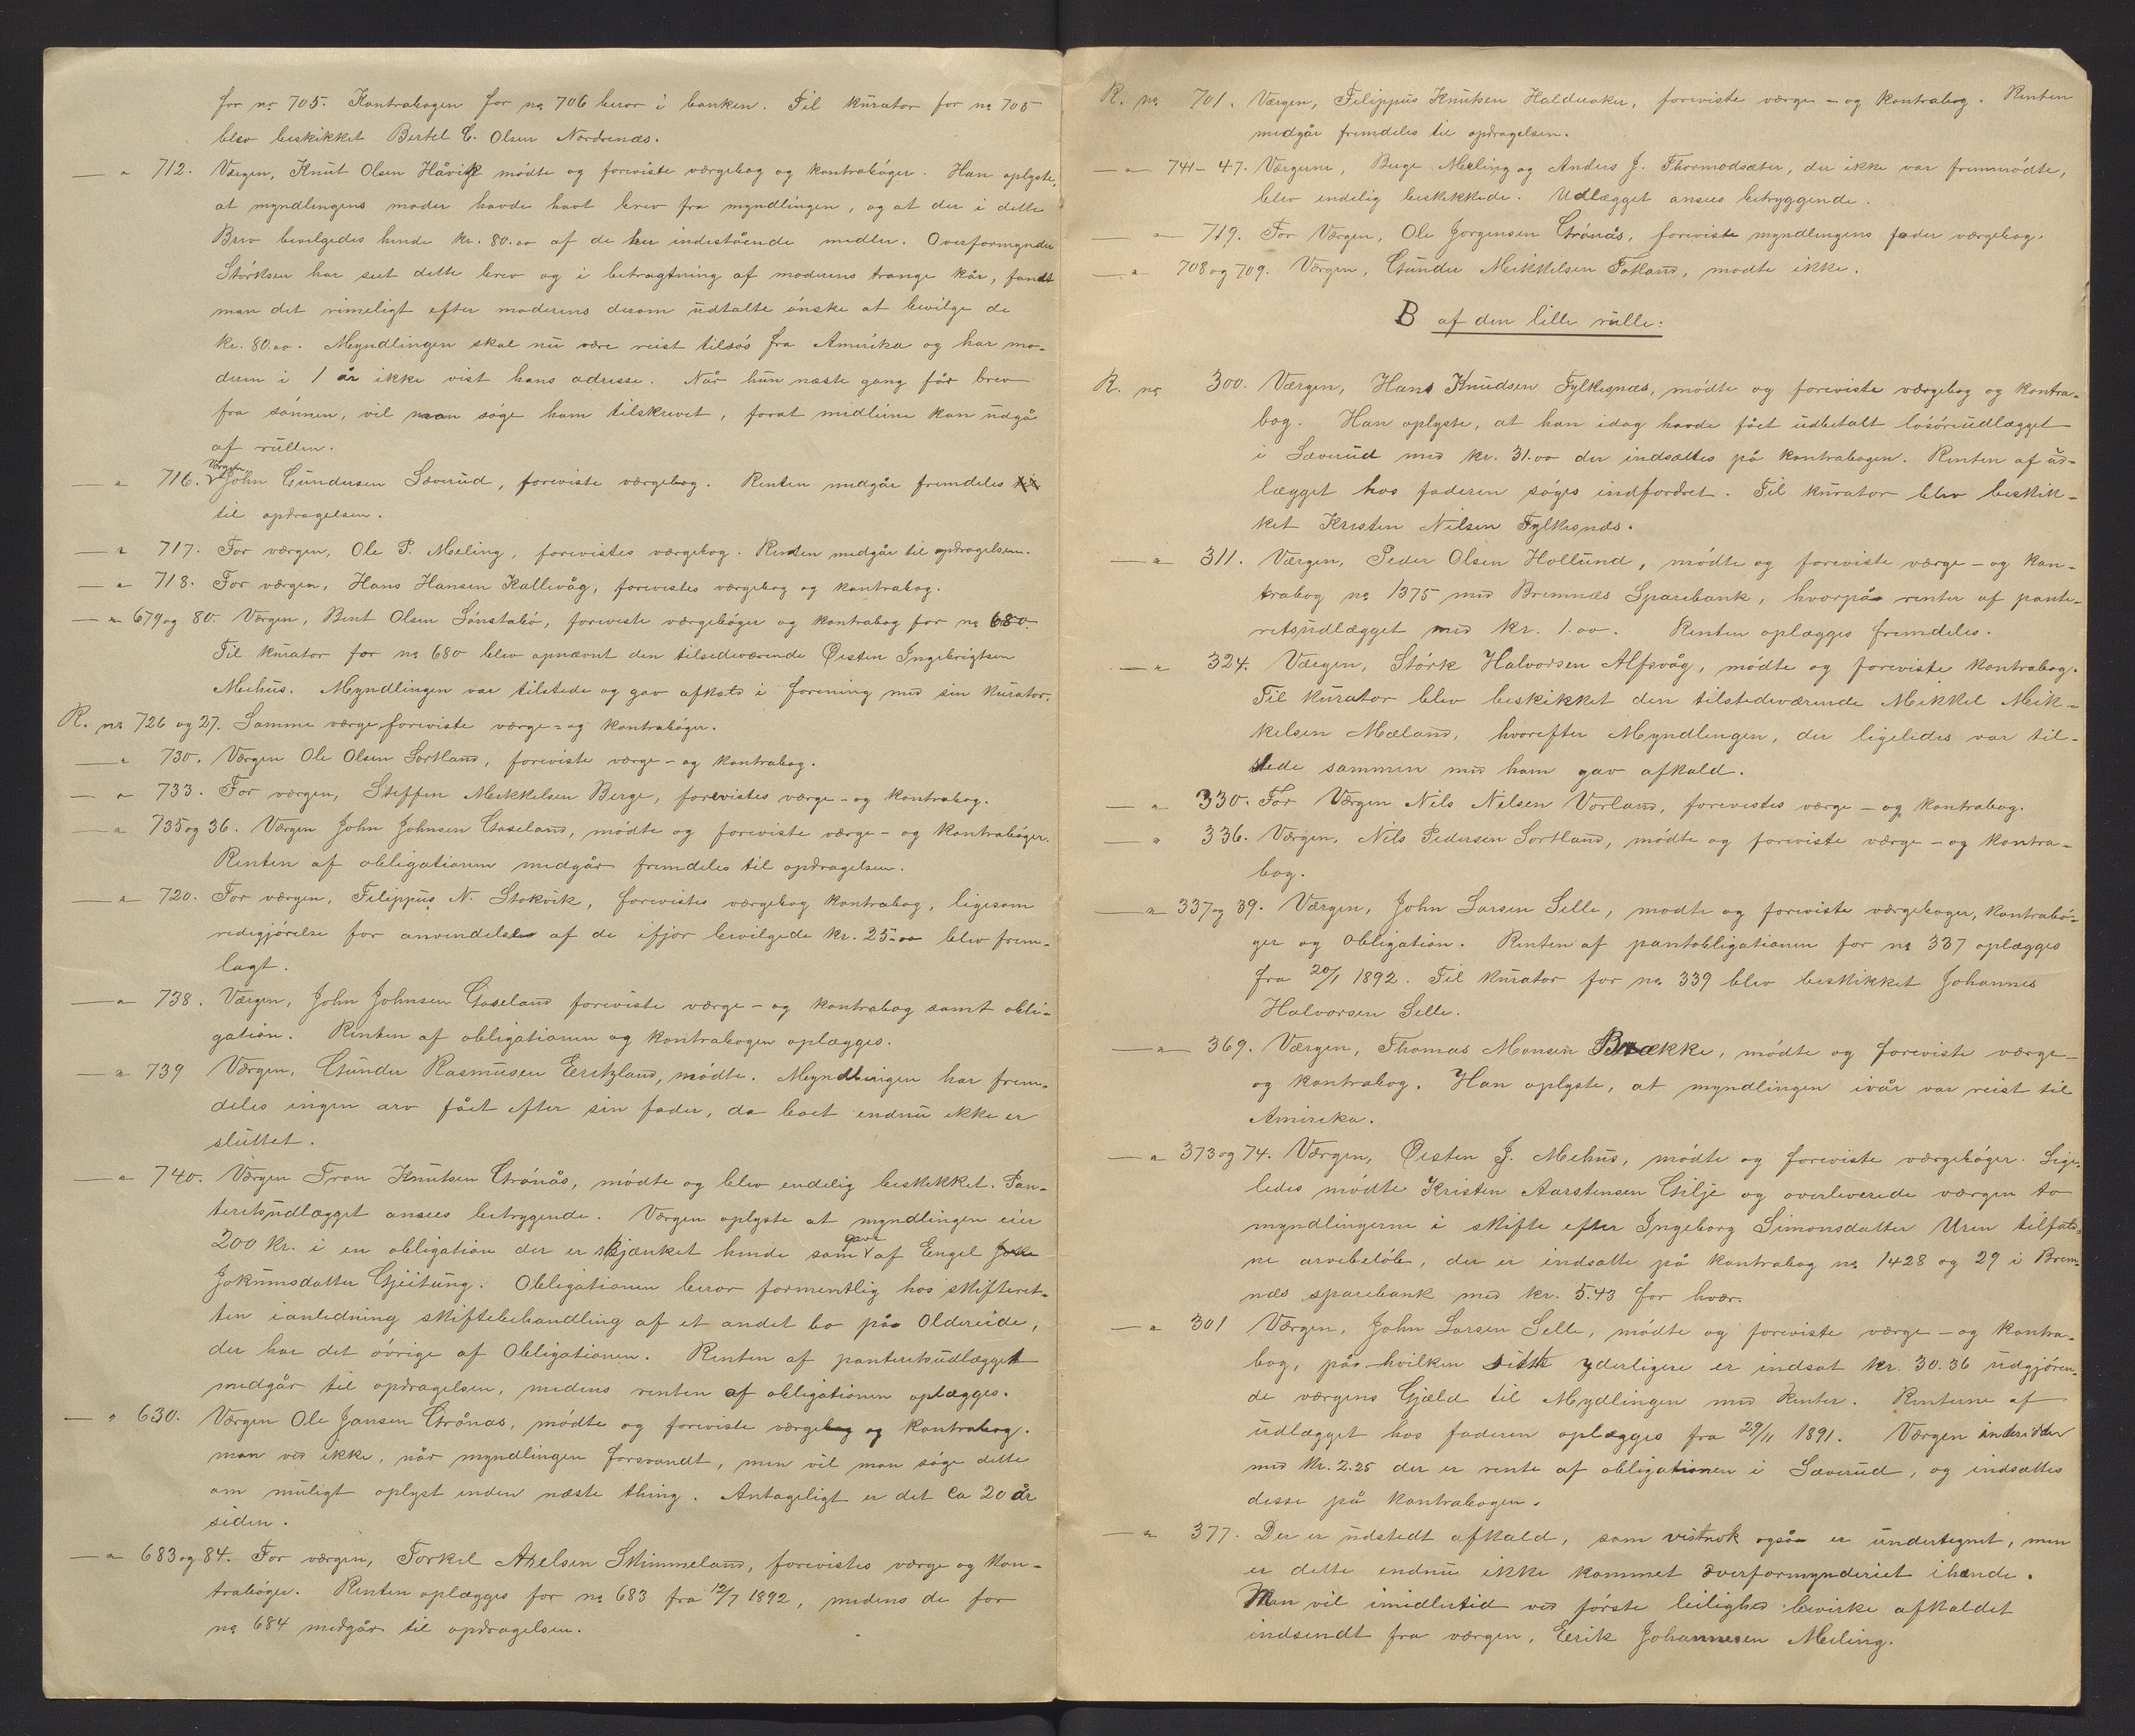 for no 705. Kontrabogen for no 706 beror i banken. Til kurator for no 705
blev beskikket Bertel C. Olsen Nordrenæs.
— " 712. Værgen, Knut Olsen Håvik mødte og foreviste værgebog og kontrabøger. Han oplyste,
at myndlingens moder havde havt brev fra myndlingen, og at der i dette
Brev bevilgedes hende kr. 80.00 af de her indestående midler. Overformynder
Störksen har seet dette brev og i betragtning af moderens trange kår, fandt
man det rimeligt efter moderens derom udtalte ønske at bevilge de
kr. 80.00. Myndlingen skal nu være reist tilsøs fra Amerika og har mo-
deren i 1 år ikke vist hans adresse. Når hun næste gang får brev
fra sønnen, vil man søge ham tilskrevet, forat midlerne kan udgå
af rullen.
— " 716. Værgen John Gundersen Sæverud, foreviste værgebog. Renten medgår fremdeles
til opdragelsen.
— " 717. For værgen, Ole P. Meling, forevistes værgebog. Renten medgår til opdragelsen.
— " 718. For værgen, Hans Hansen Kallevåg, forevistes værgebog og kontrabog.
— " 679 og 80. Værgen, Bent Olsen Sønstabø, foreviste værgebøger og kontrabog for no 680.
Til kurator for no 680 blev opnævnt den tilsedeværende Øisten Ingebrigtsen
Mehus. Myndlingen var tilstede og gav afkald i forening med sin kurator.
R. no 726 og 27. Samme værge foreviste værge- og kontrabøger.
— " 730. Værgen Ole Olsen Sortland, foreviste værge- og kontrabog.
— " 733. For værgen, Steffen Mekkelsen Berge, forevistes værge- og kontrabog.
— " 735 og 36. Værgen John Johnsen Gaseland, mødte og foreviste værge- og kontrabøger.
Renten af obligationen medgår fremdeles til opdragelsen.
— " 720. For værgen, Filippus N. Stokvik, forevistes værgebog kontrabog, ligesom
redegjørelse for anvendelse af de ifjor bevilgede kr. 25.00 blev frem-
lagt.
— " 738. Værgen, John Johnsen Gaseland foreviste værge- og kontrabog samt obli-
gation. Renten af obligationen og kontrabogen oplægges.
— " 739 Værgen, Gunder Rasmusen Eritzland, mødte. Myndlingen har frem-
deles ingen arv fået efter sin fader, da boet endnu ikke er
sluttet.
— " 740. Værgen Tron Knutsen Grønås, mødte og blev endelig beskikket. Pan-
teretsudlægget ansees betrygende. Værgen oplyste at myndlingen eier
200 kr. i en obligation der er skjænket hende som gave af Engel
Jokumsdatter Gjeitung. Obligationen beror formentlig hos skifteret-
ten ianledning skiftebehandling af et andet bo på Oldereide,
der har det øvrige af Obligationen. Renten af panteretsudlægget
medgår til opdragelsen, medens renten af obligationen oplægges.
— " 630. Værgen Ole Jansen Grønas, mødte og foreviste værgebog og kontrabog.
man ved ikke, når myndlingen forsvandt, men vil man søge dette
om muligt oplyst inden næste thing. Antageligt er det ca 20 år
siden.
— " 683 og 84. For værgen, Torkel Axelsen Skimmeland, forevistes værge og kon-
trabøger. Renten oplægges for no 683 fra 12/7 1892, medens de for
no 684 medgår til opdragelsen.
R. no 701. Værgen, Filippus Knutsen Halderaker, foreviste værge- og kontrabog. Renten
medgår fremdeles til opdragelsen.
— " — 741-47. Værgerne, Berge Meling og Anders J. Thormodsæter, der ikke var fremmødte,
blev endelig beskikkede. Udlægget ansees betryggende.
— " — 719. For Værgen, Ole Jorgensen Grønås, foreviste myndlingens fader værgebog.
— " 708 og 709. Værgen, Gunder Mekkelsen Totland, mødte ikke.
B af den lille rulle:
R. no 300. Værgen, Hans Knudsen Fylkesnæs, mødte og foreviste værgebog og kontra-
bog. Han oplyste, at han idag havde fået udbetalt løsøreudlægget
i Sæverud med kr. 31.00 der indsættes på kontrabogen. Renten af ud-
lægget hos faderen søges indfordret. Til kurator blev beskik-
ket Kristen Nilsen Fylkesnæs.
— " — 311. Værgen, Peder Olsen Hollund, mødte og foreviste værge- og kon-
trabog no 1375 med Bremnæs Sparebank, hvorpå renter af pante-
retsudlægget med kr. 1.00. Renten oplægges fremdeles.
— " 324. Værgen, Størk Halvorsen Alfsvåg, mødte og foreviste kontrabog.
Til kurator blev beskikket den tilstedeværende Mekkel Mek-
kelsen Mæland, hvorefter Myndlingen, der ligeledes var til-
stede sammen med ham gav afkald.
— " 330. For Værgen Nils Nelsen Vorland, forevistes værge- og kontrabog.
— " 336. Værgen, Nils Pedersen Sortland, mødte og foreviste værge- og kontra-
bog.
— " 337 og 39. Værgen, John Larsen Selle, mødte og foreviste værgebøger, kontrabø-
ger og obligation. Renten af pantobligationen for no 337 oplægges
fra 20/1 1892. Til kurator for no 339 blev beskikket Johannes
Halvorsen Selle.
— " — 369. Værgen, Thomas Monsen Brække, mødte og foreviste værge-
og kontrabog. Han oplyste, at myndlingen ivår var reist til
Amireka.
— " 373 og 74. Værgen, Øisten J. Mehus, mødte og foreviste værgebøger. Lige-
ledes mødte Kristen Aarstensen Gilje og overleverede værgen to
myndlingerne i skifte efter Ingeborg Simonsdatter Uren tilfald-
ne arvebeløb, der er indsatte på kontrabog no 1428 og 29 i Brem-
næs sparebank med kr. 5.43 for hver.
— " 301 Værgen, John Larsen Selle, mødte og foreviste værge- og kontra-
bog, på hvilken sidste yderligere er indsat kr. 30.36 udgjøren-
de værgens Gjæld til Mydlingen med Renter. Renterne af
udlægget hos faderen oplægges fra 29/11 1891. Værgen
med kr. 2.25 der er rente af obligationen i Sæverud, og indsættes
desse på kontrabogen.
— " 377. Der er udstedt afkald, som vistnok også er undertegnet, men
er dette endnu ikke kommet overformynderiet ihænde.
Man vil imidlertid ved første leilighed bevirke afkaldet
indsendt fra værgen, Eerik Johannesen Meling.